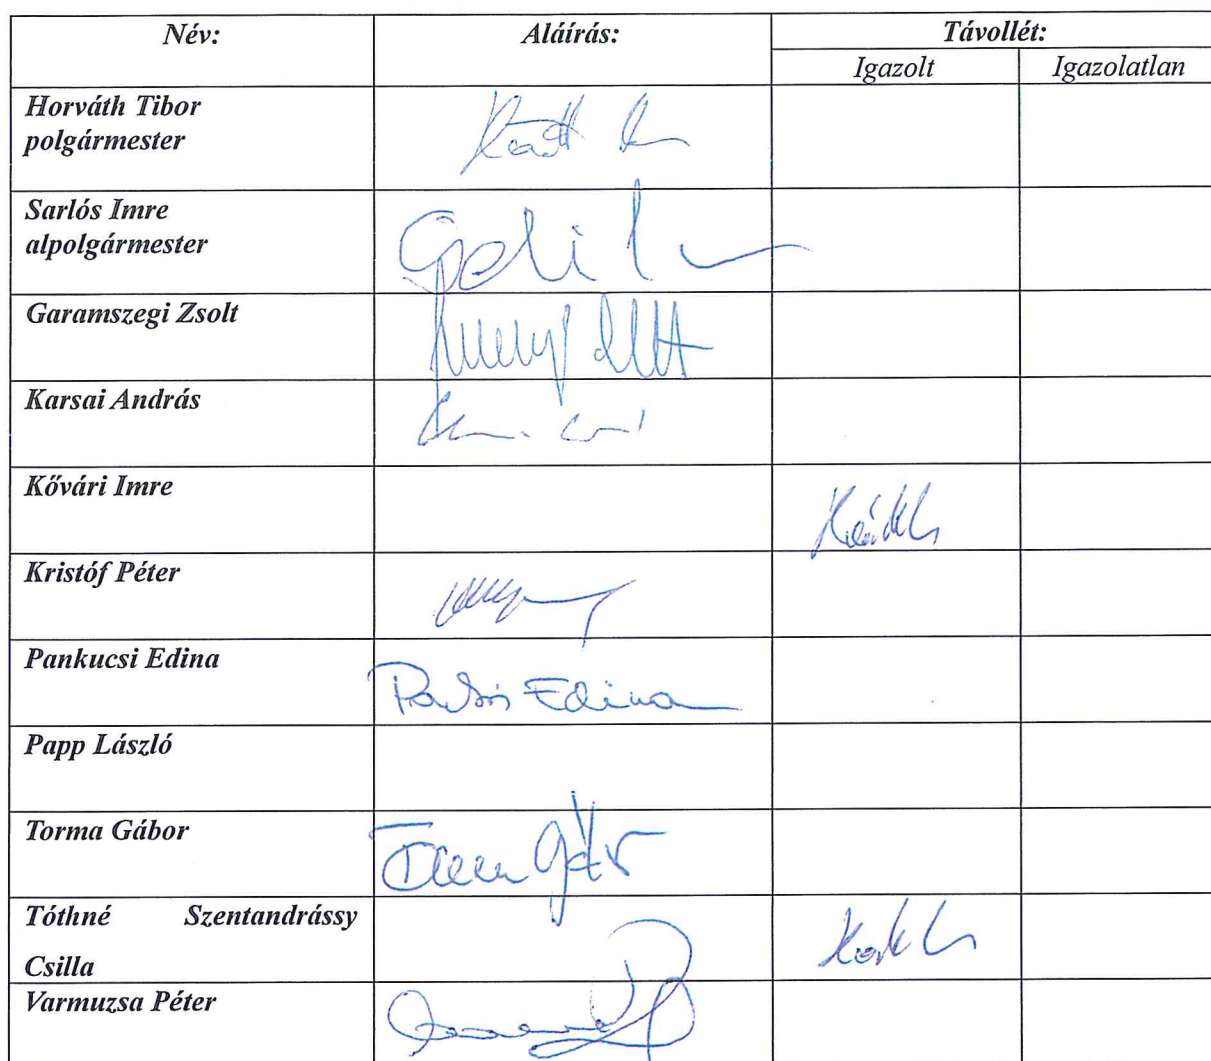 Név: Aláírás: Távollét:
Igazolt Igazolatlan
Horváth Tibor
polgármester
Sarlós Imre
alpolgármester
Garamszegi Zsolt
Karsai András
Kővári Imre
Kristóf Péter
Pankucsi Edina
Edina
Papp László
Torma Gábor
Tóthné Szentandrássy
Csilla
Varmuzsa Péter